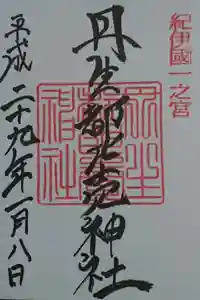 紀伊國一之宮
丹生都比売神社
平成二十九年一月八日